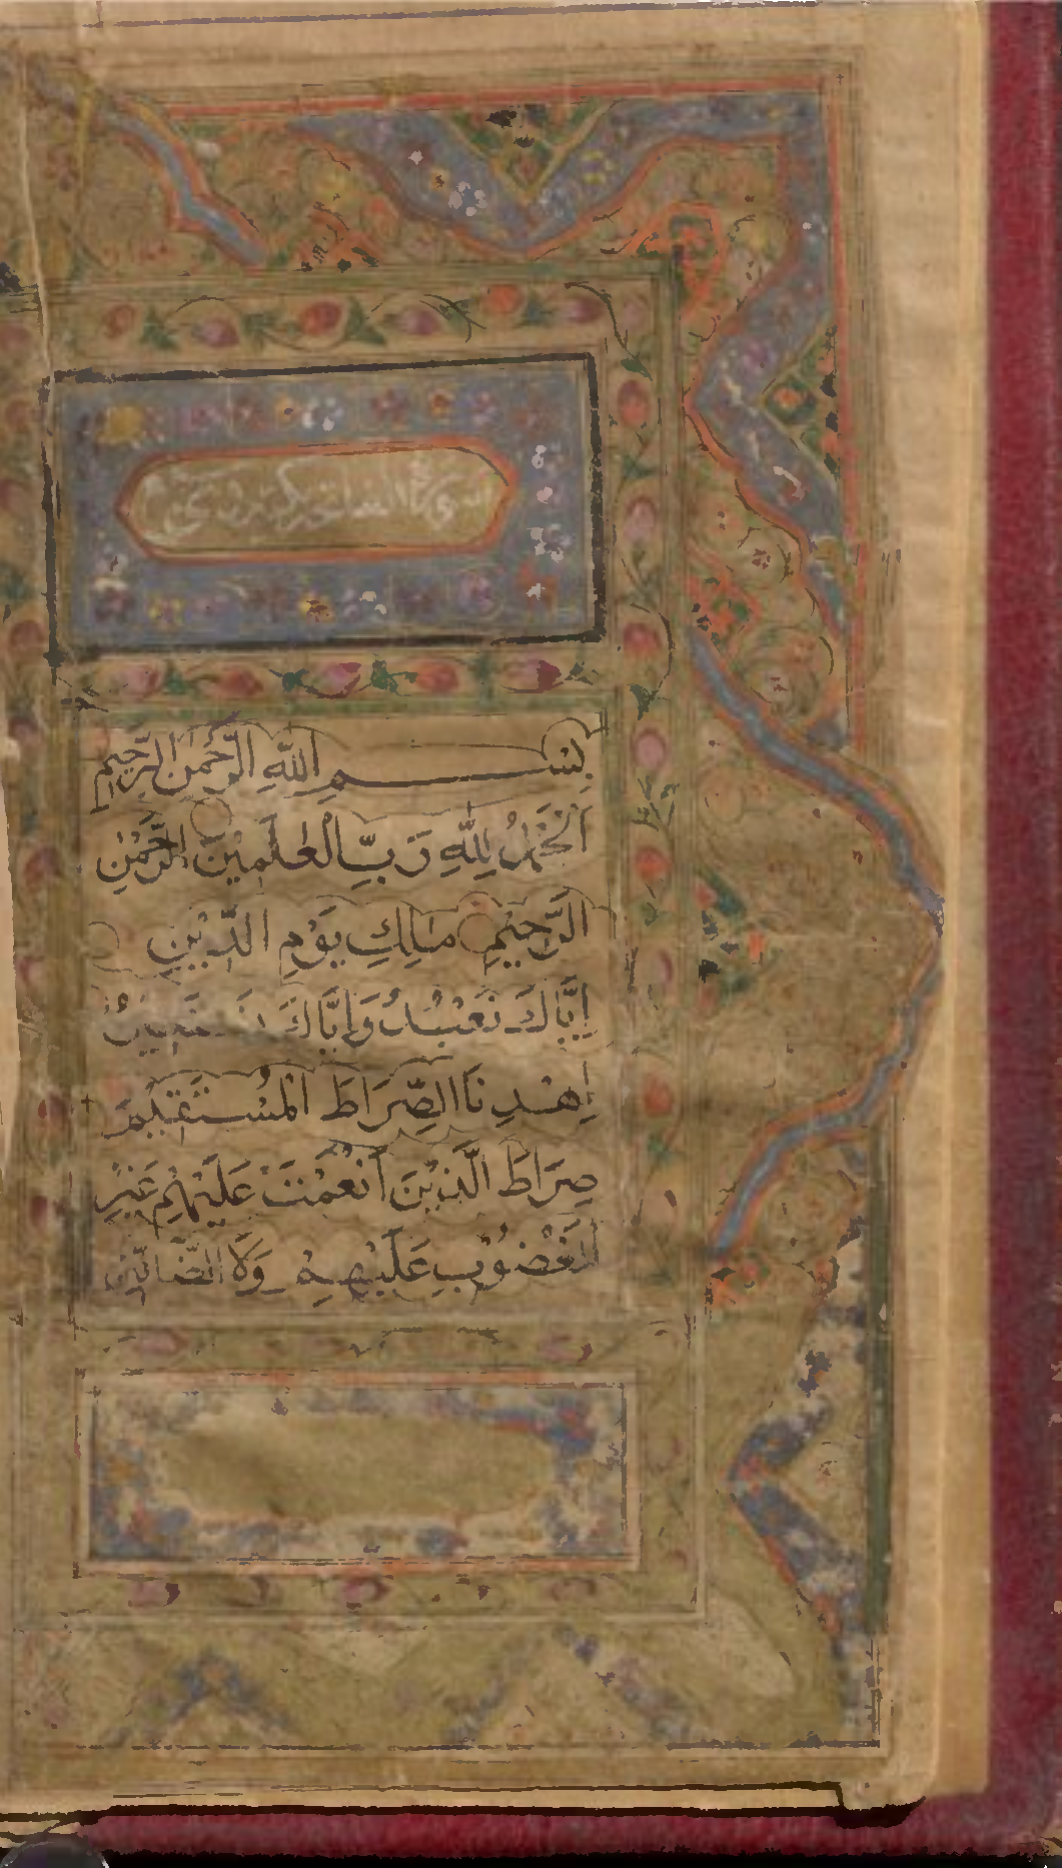 بِسْمِ اللّٰهِ الرَّحْمٰنِ الرَّحِيْمِ
اَلْحَمْدُ لِلّٰهِ رَبِّ الْعٰلَمِيْنَ الرَّحْمٰنِ
الرَّحِيْمِ مٰلِكِ يَوْمِ الدِّيْنِ
اِيَّاكَ نَعْبُدُ وَاِيَّاكَ نَسْتَعِيْنُ
اِهْدِنَا الصِّرَاطَ الْمُسْتَقِيْمَ
صِرَاطَ الَّذِيْنَ اَنْعَمْتَ عَلَيْهِمْ غَيْرِ
الْمَغْضُوْبِ عَلَيْهِمْ وَلَا الضَّالِّيْنَ